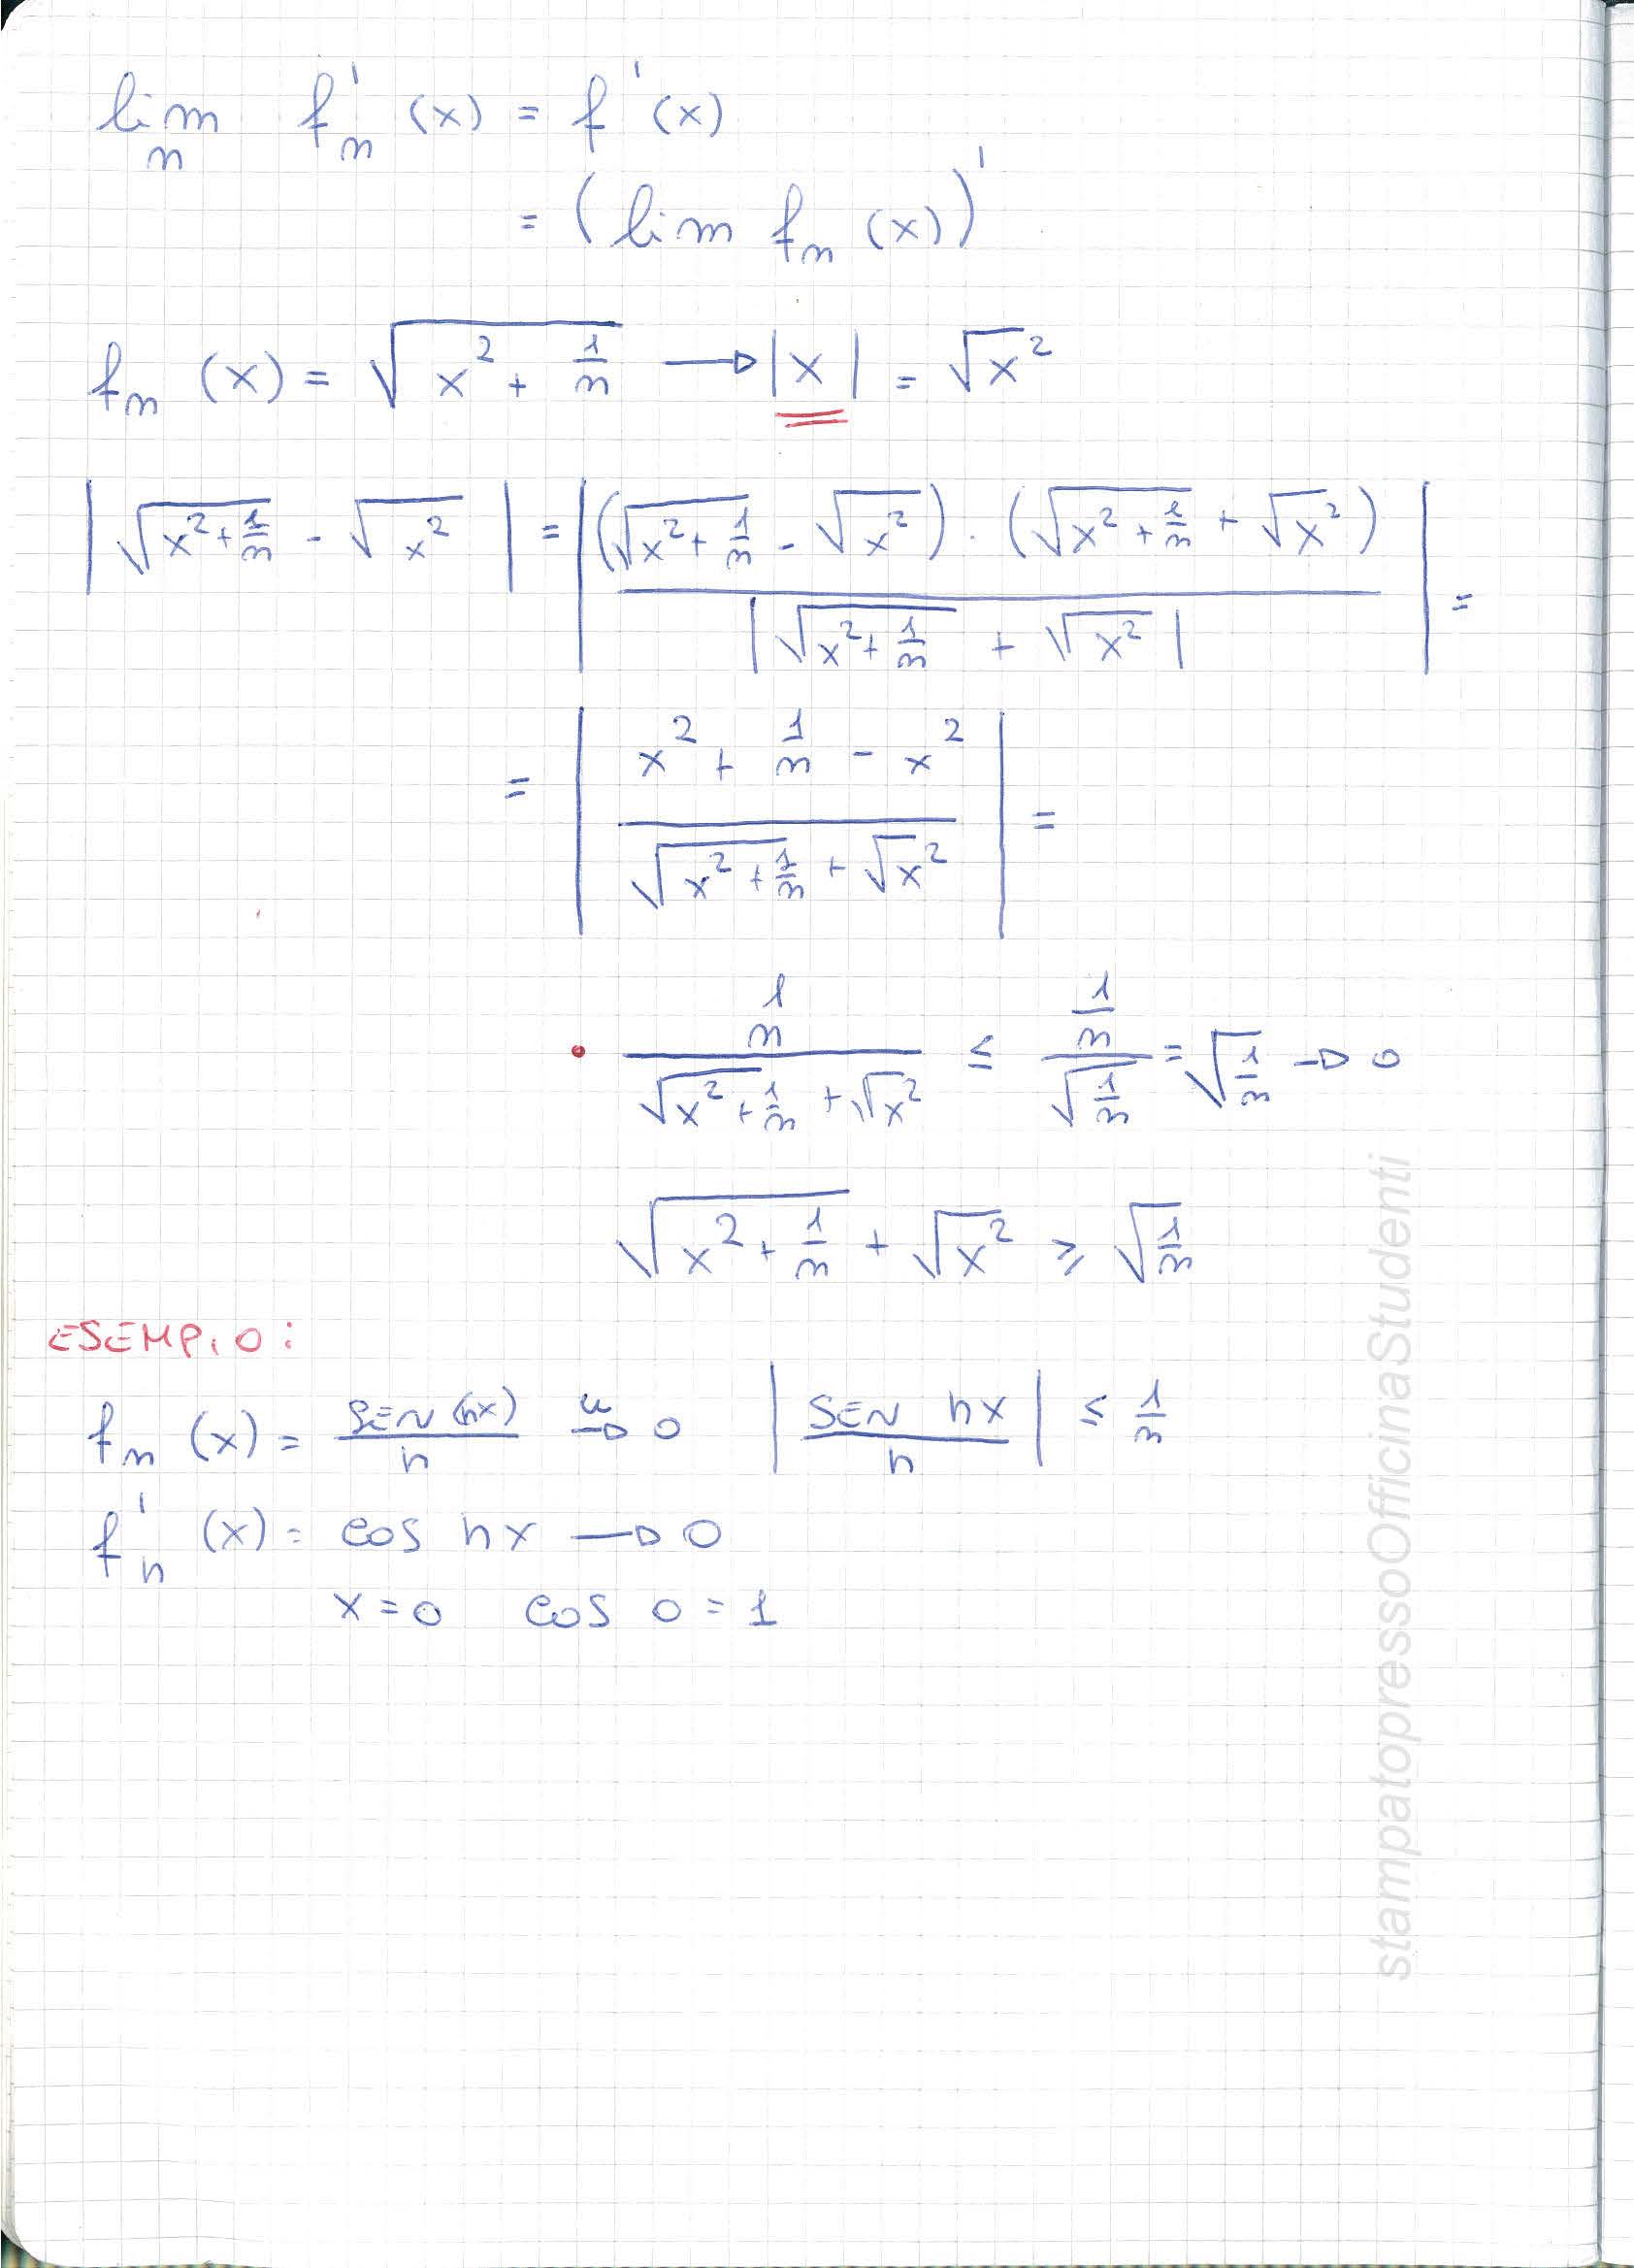 lim_n f'_n (x) = f'(x)
= (lim f_n (x))'
f_n (x) = √(x² + 1/n) → |x| = √x²
|√(x² + 1/n) - √x²| = |(√(x² + 1/n) - √x²) · (√(x² + 1/n) + √x²) / |√(x² + 1/n) + √x²|| =
= |(x² + 1/n - x²) / (√(x² + 1/n) + √x²)| =
• (1/n) / (√(x² + 1/n) + √x²) ≤ (1/n) / √(1/n) = √(1/n) → 0
√(x² + 1/n) + √x² ≥ √(1/n)
ESEMPIO:
f_n (x) = SEN(nx)/n →ᵘ 0 |SEN nx / n| ≤ 1/n
f'_n (x) = cos nx → 0
x = 0 cos 0 = 1
stampatopressoOfficinaStudenti